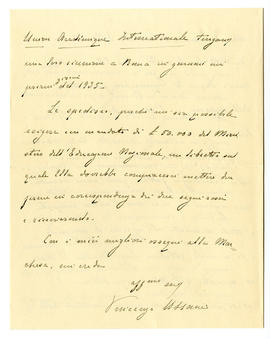 Union Académique Internationale tengano
una loro riunione a Roma in gennaio nei
primi giorni del 1935.
Le spedisco, perché mi sia possibile
esigere un mandato di £ 50.000 del Mini
stero dell'Educazione Nazionale, un libretto sul
quale Ella dovrebbe compiacersi mettere due
firme in corrispondenza dei due segni rossi
e rinviarmelo.
Con i miei migliori ossequi alla Mar
chesa, mi creda
aff.mo suo
Vincenzo Ussani